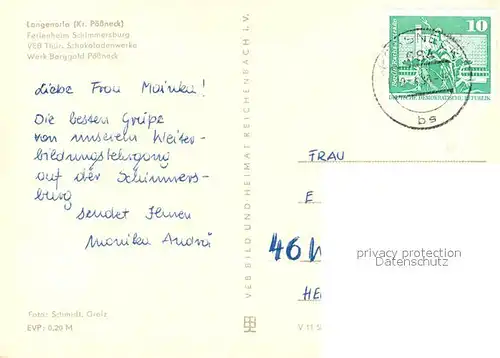 Langenorla (Kr. Pößneck)
Ferienheim Schimmersburg
VEB Thür. Schokoladenwerke
Werk Berggold Pößneck
Liebe Frau Mainka!
Die besten Grüße
von unserem Weiter-
bildungslehrgang
auf der Schimmers-
burg
sendet Ihnen
Monika André
Foto: Schmidt, Greiz
EVP: 0,20 M
VEB BILD UND HEIMAT REICHENBACH i. V.
V 11
10
DEUTSCHE DEMOKRATISCHE REPUBLIK
bs
FRAU
E
46
HE
privacy protection
Datenschutz